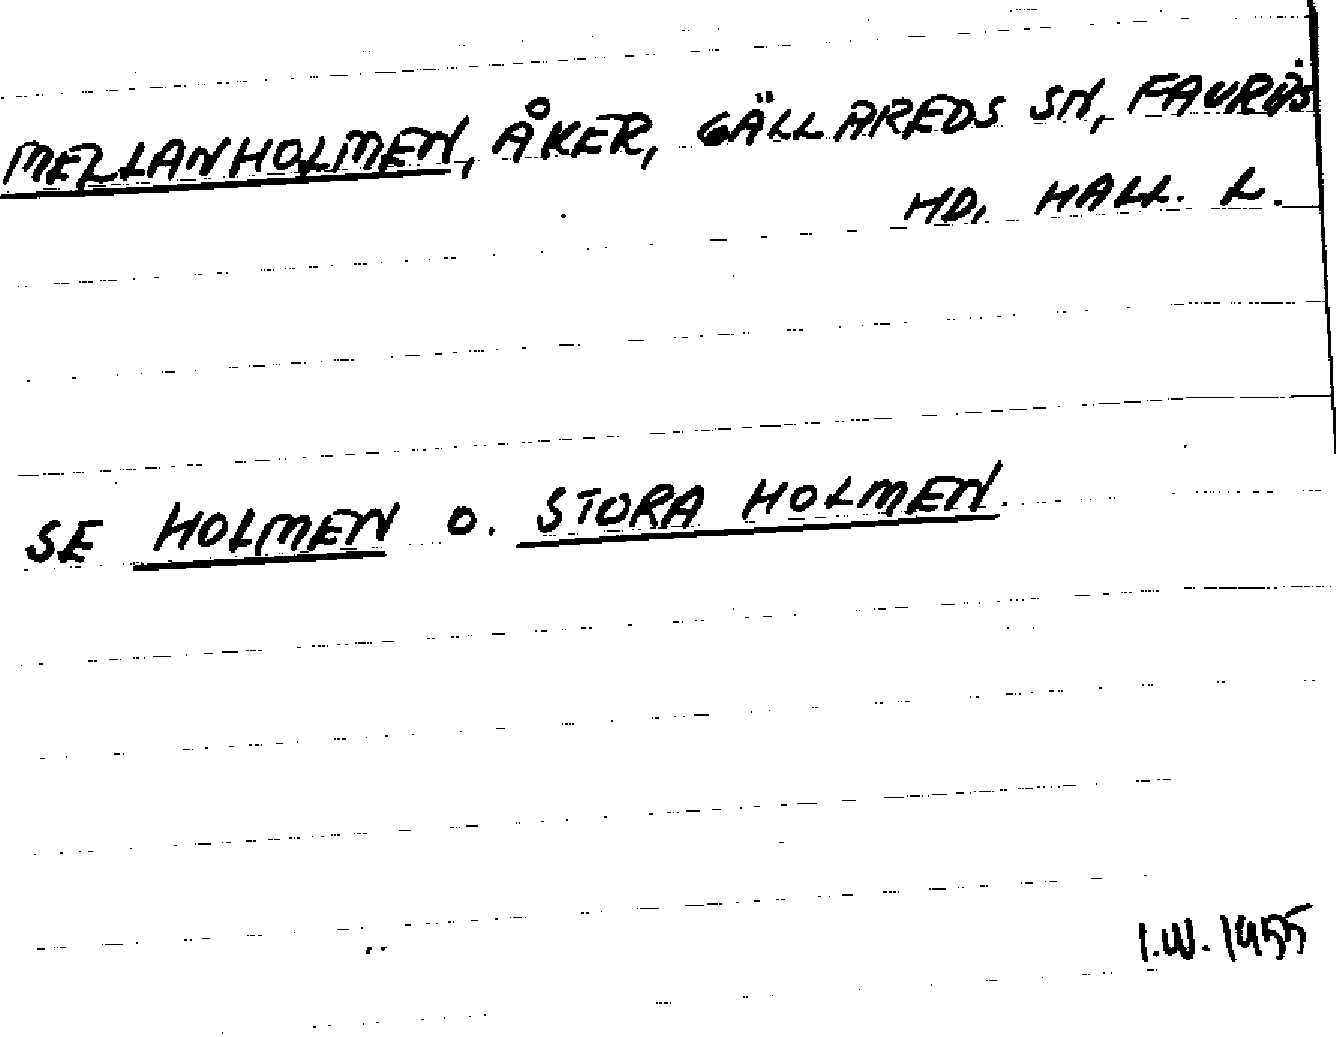 MELLANHOLMEN, ÅKER, GÄLLAREDS SN, FAURÅS
HD, HALL. L.
SE HOLMEN O. STORA HOLMEN.
I.W. 1955